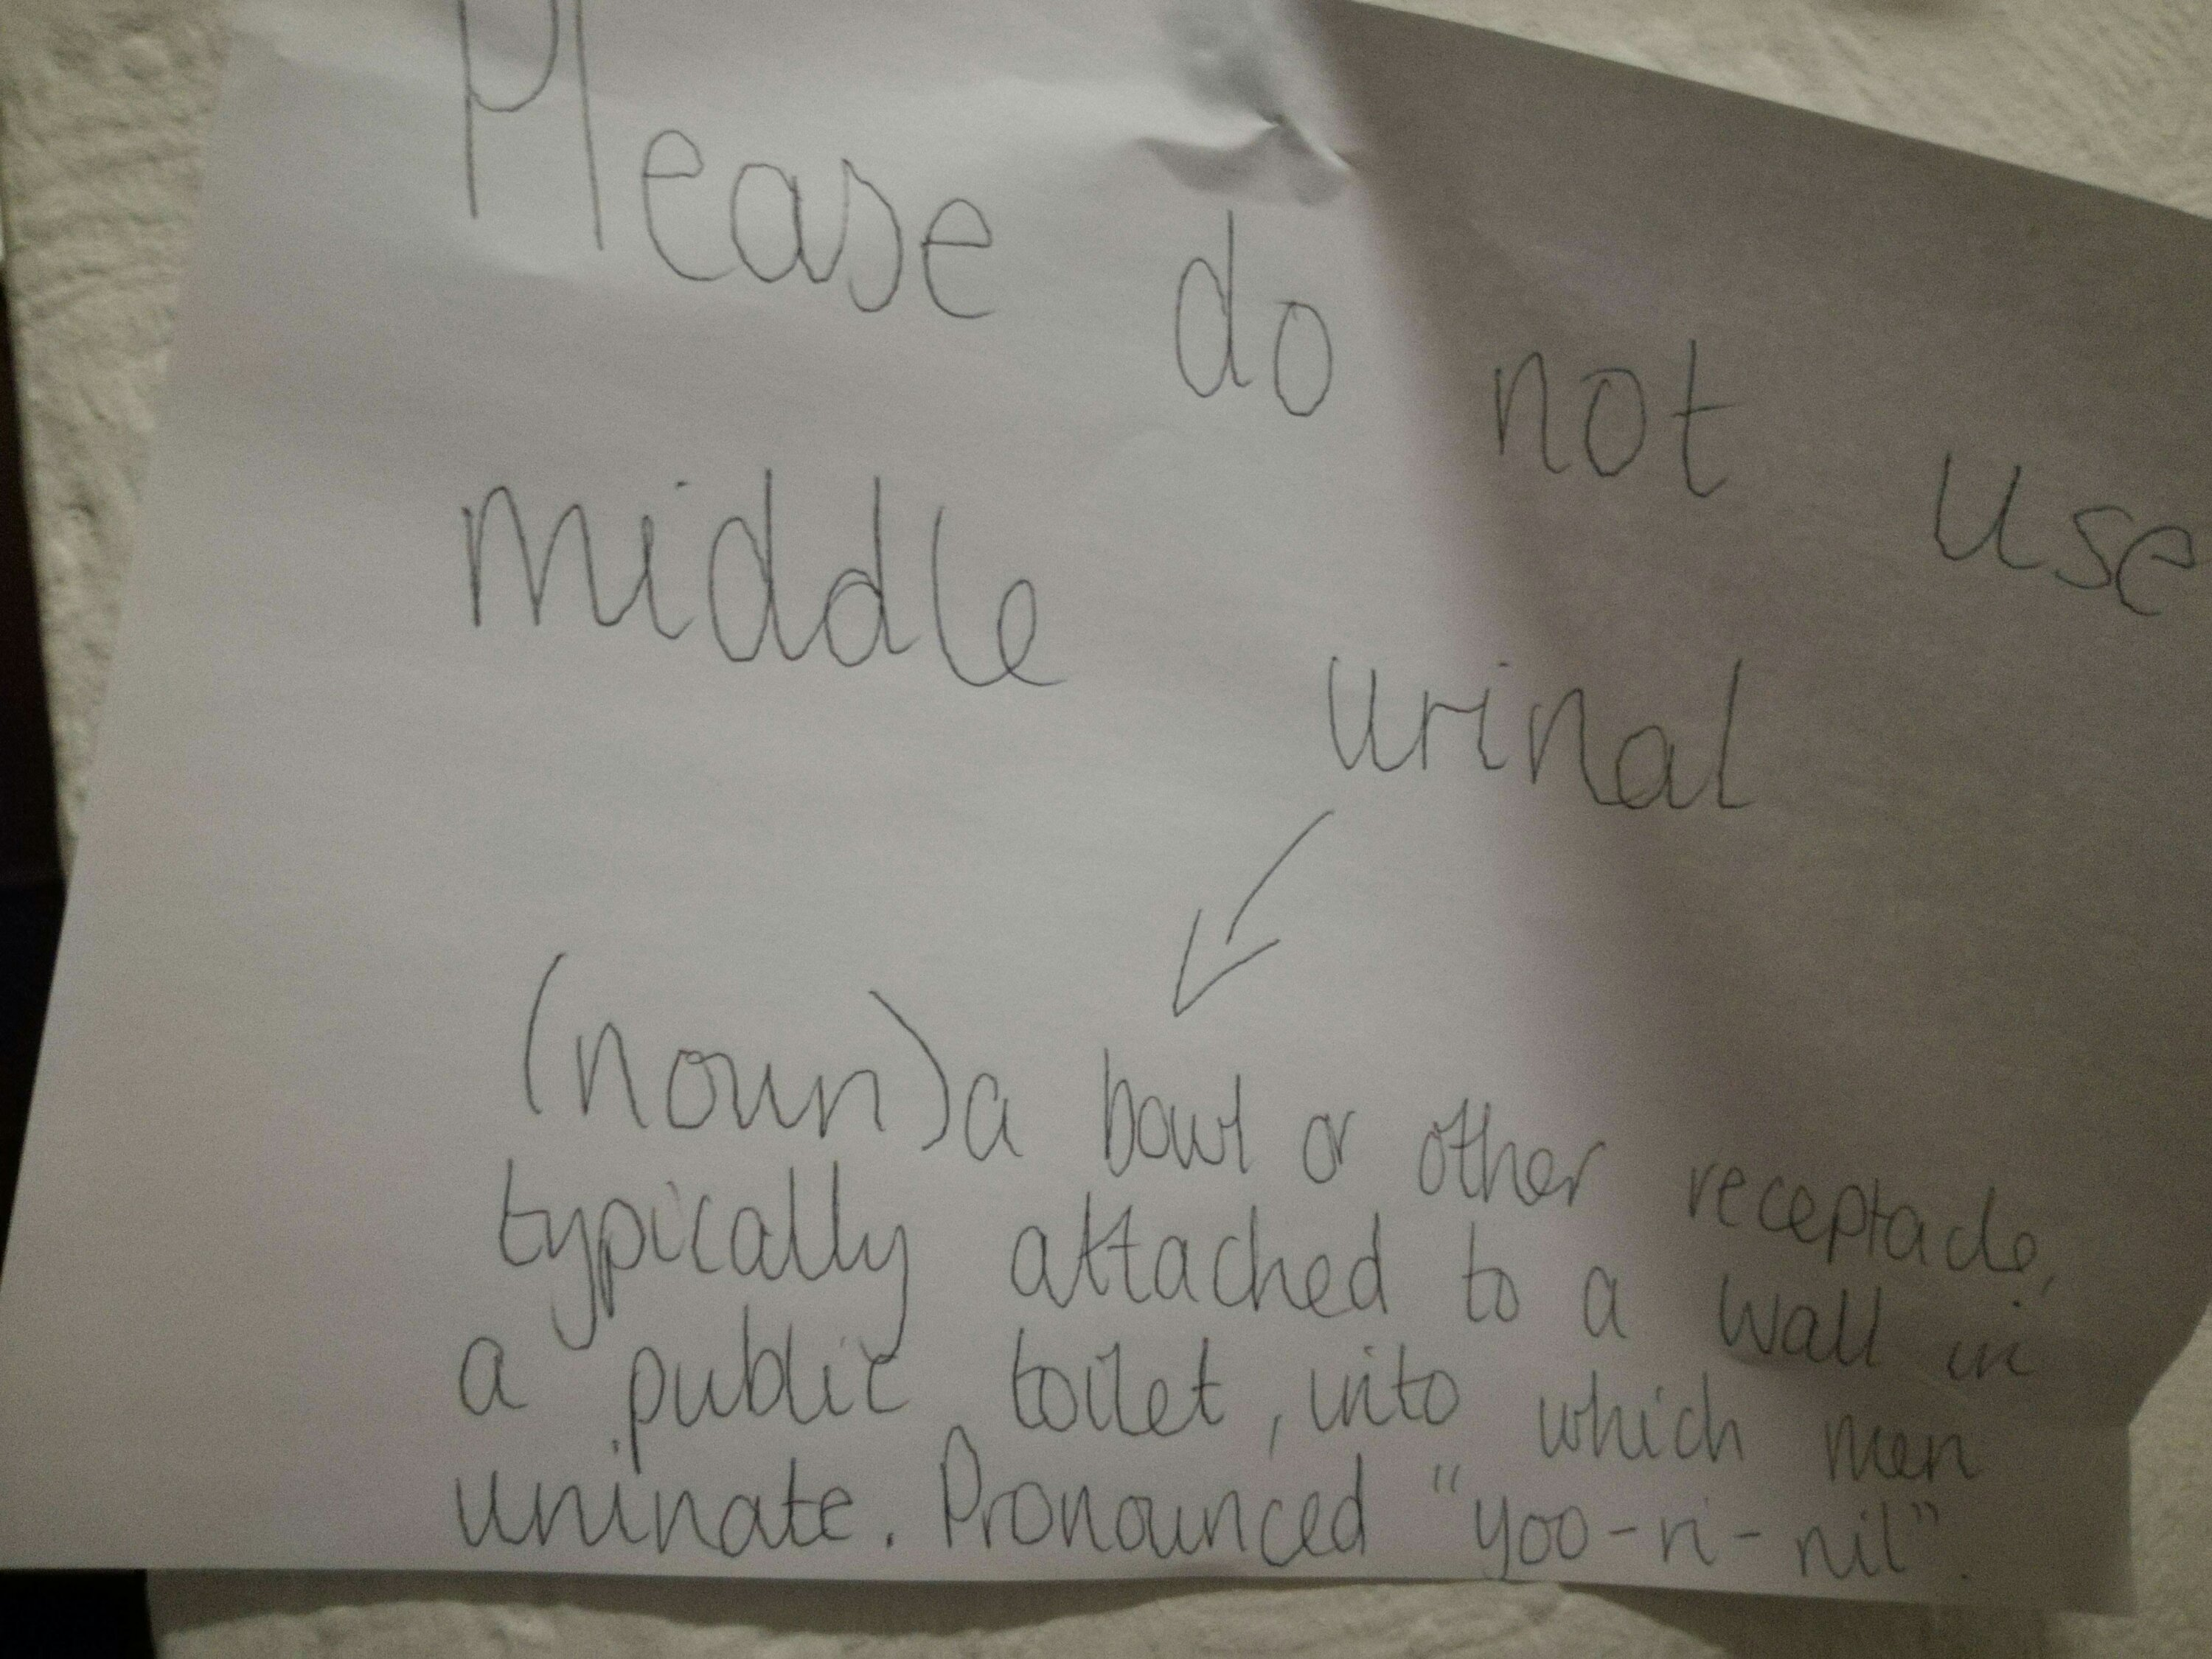 Please do not use
middle urinal
(noun) a bowl or other receptacle,
typically attached to a wall in
a public toilet, into which men
urinate. Pronounced "yoo-ri-nil".